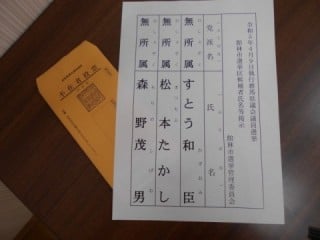 令和5年4月9日執行群馬県議会議員選挙
館林市選挙区候補者氏名等掲示
館林市選挙管理委員会
党派名
氏名
無所属
すとう和臣
無所属
松本たかし
無所属
森野茂男
不在者投票